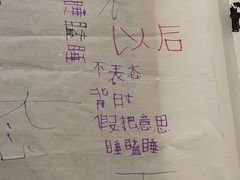 睡瞌睡
以后
不表态
背时
假把意思
睡瞌睡